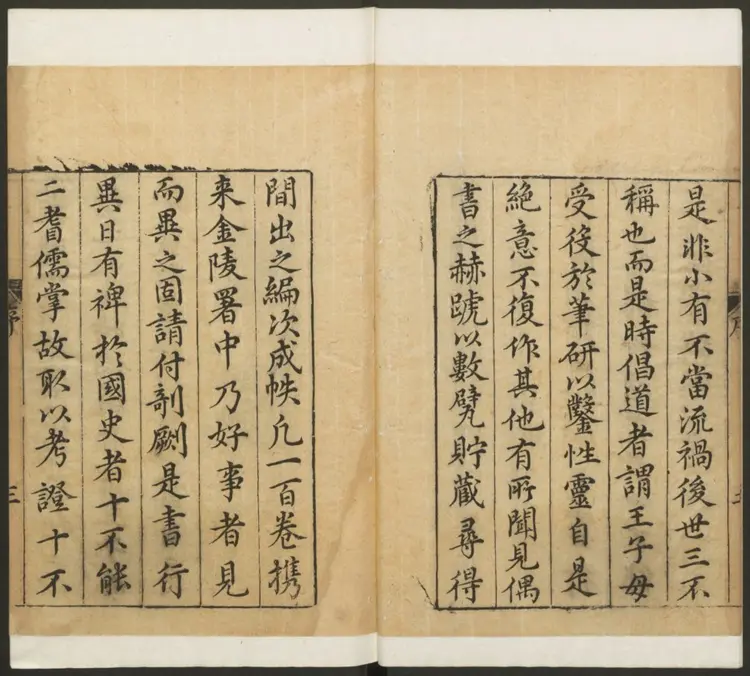 是非小有不當流禍後世三不
稱也而是時倡道者謂王子毋
受役於筆研以鑿性靈自是
絶意不復作其他有所聞見偶
書之赫蹏以數甓貯藏尋得
間出之編次成帙凡一百卷携
来金陵署中乃好事者見
而異之固請付剞劂是書行
異日有裨於國史者十不能
二耆儒掌故取以考證十不
三